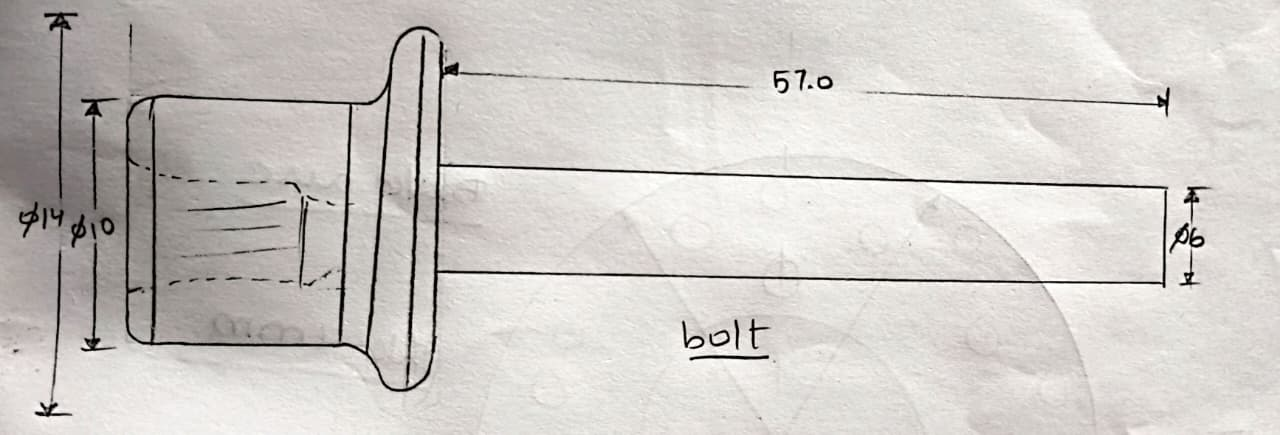 57.0
ϕ14
ϕ10
ϕ6
bolt